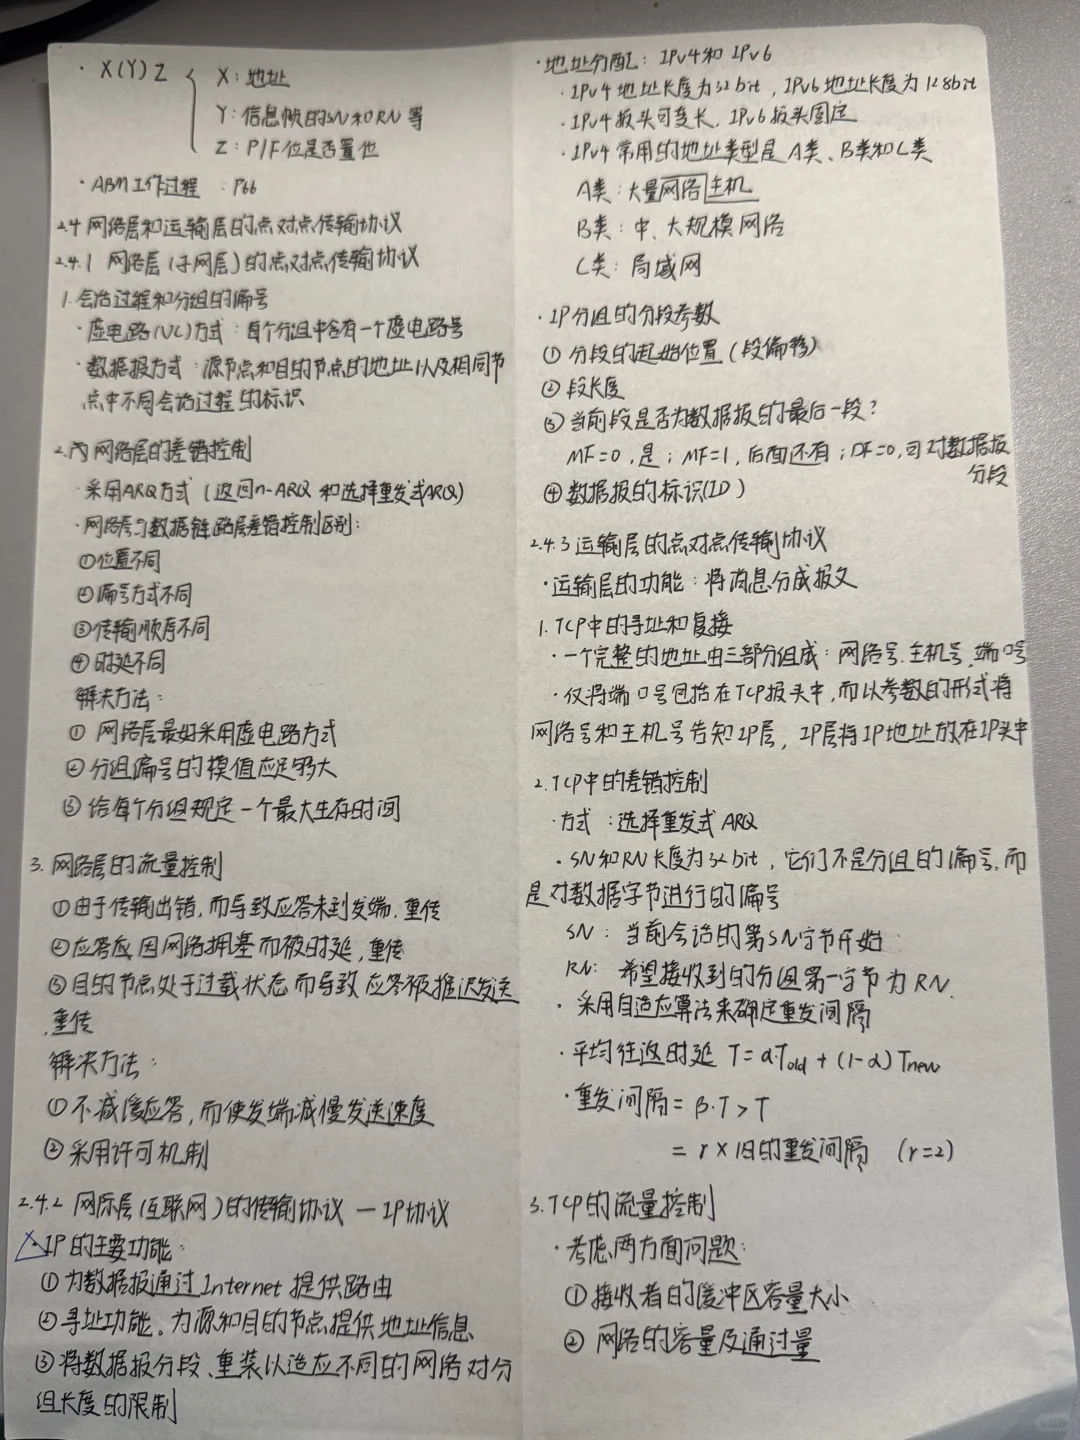 · X(Y)Z { X：地址
Y：信息帧的SN和RN等
Z：P/F位是否置位
· ABM工作过程：P66
2.4 网络层和运输层的点对点传输协议
2.4.1 网络层(子网层)的点对点传输协议
1.会话过程和分组的编号
· 虚电路(VC)方式：每个分组中含有一个虚电路号
· 数据报方式：源节点和目的节点的地址以及相同节
点中不同会话过程的标识
2.网络层的差错控制
· 采用ARQ方式(返回n-ARQ和选择重发式ARQ)
· 网络层与数据链路层差错控制区别：
①位置不同
②编号方式不同
③传输顺序不同
④时延不同
解决方法：
① 网络层最好采用虚电路方式
②分组编号的模值应足够大
③给每个分组规定一个最大生存时间
3.网络层的流量控制
①由于传输出错,而导致应答未到发端,重传
②应答应因网络拥塞而被时延,重传
③目的节点处于过载状态而导致应答被推迟发送
,重传
解决方法：
①不减慢应答,而使发端减慢发送速度
②采用许可机制
2.4.2 网际层(互联网)的传输协议—IP协议
△·IP的主要功能：
①为数据报通过Internet提供路由
②寻址功能。为源和目的节点提供地址信息
③将数据报分段、重装以适应不同的网络对分
组长度的限制
·地址分配：IPv4和IPv6
· IPv4地址长度为32bit，IPv6地址长度为128bit
· IPv4报头可变长，IPv6报头固定
· IPv4常用的地址类型是A类、B类和C类
A类：大量网络主机
B类：中、大规模网络
C类：局域网
· IP分组的分段参数
①分段的起始位置(段偏移)
②段长度
③当前段是否为数据报的最后一段？
MF=0,是；MF=1,后面还有；DF=0,可对数据报
分段
④数据报的标识(ID)
2.4.3 运输层的点对点传输协议
·运输层的功能：将消息分成报文
1. TCP中的寻址和复接
·一个完整的地址由三部分组成：网络号、主机号、端口号
· 仅将端口号包括在TCP报头中,而以参数的形式将
网络号和主机号告知IP层，IP层将IP地址放在IP头中
2.TCP中的差错控制
·方式：选择重发式ARQ
· SN和RN长度为32bit，它们不是分组的编号,而
是对数据字节进行的编号
SN：当前会话的第SN字节开始
RN：希望接收到的分组第一字节为RN.
· 采用自适应算法来确定重发间隔
· 平均往返时延 T=α·Told+(1-α)Tnew
·重发间隔=β·T>T
=r×旧的重发间隔 (r=2)
3.TCP的流量控制
·考虑两方面问题：
①接收者的缓冲区容量大小
② 网络的容量及通过量